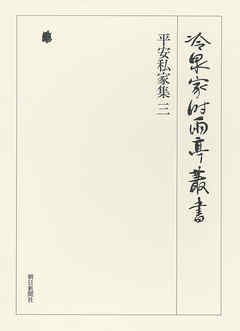 冷泉家時雨亭叢書
平安私家集 三
朝日新聞社